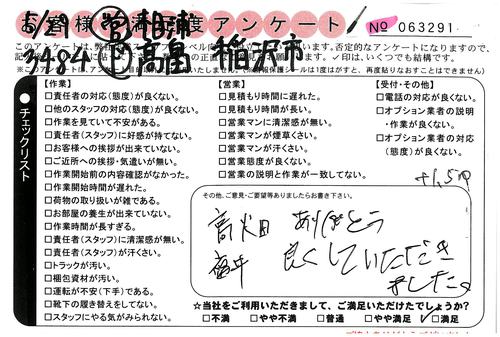 お客様満足度アンケート
No 063291
5/29 営 相浦
3484 高畠 稲沢市
※このアンケートは、
チェックリスト
【作業】
□責任者の対応(態度)が良くない。
□他のスタッフの対応(態度)が良くない。
□作業を見ていて不安がある。
□責任者(スタッフ)に好感が持てない。
□お客様への挨拶が出来ていない。
□ご近所への挨拶・気遣いが無い。
□作業開始前の内容確認がなかった。
□作業開始時間が遅れた。
□荷物の取り扱いが雑である。
□お部屋の養生が出来ていない。
□作業時間が長すぎる。
□責任者(スタッフ)に清潔感が無い。
□責任者(スタッフ)が汗くさい。
□トラックが汚い。
□梱包資材が汚い。
□運転が不安(下手)である。
□靴下の履き替えをしてない。
□スタッフにやる気がみられない。
【営業】
□見積もり時間に遅れた。
□見積もり時間が長い。
□営業マンに清潔感が無い。
□営業マンが煙草くさい。
□営業マンが汗くさい。
□営業態度が良くない。
□営業の説明と作業が一致してない。
【受付・その他】
□電話の対応が良くない。
□オプション業者の説明
・作業が良くない。
□オプション業者の対応
(態度)が良くない。
その他、ご意見・ご要望等ありましたらお書き下さい。
ありがとう
良くしていただき
ました
☆当社をご利用いただきまして、ご満足いただけたでしょうか?
□不満 □やや不満 □普通 □やや満足 □満足